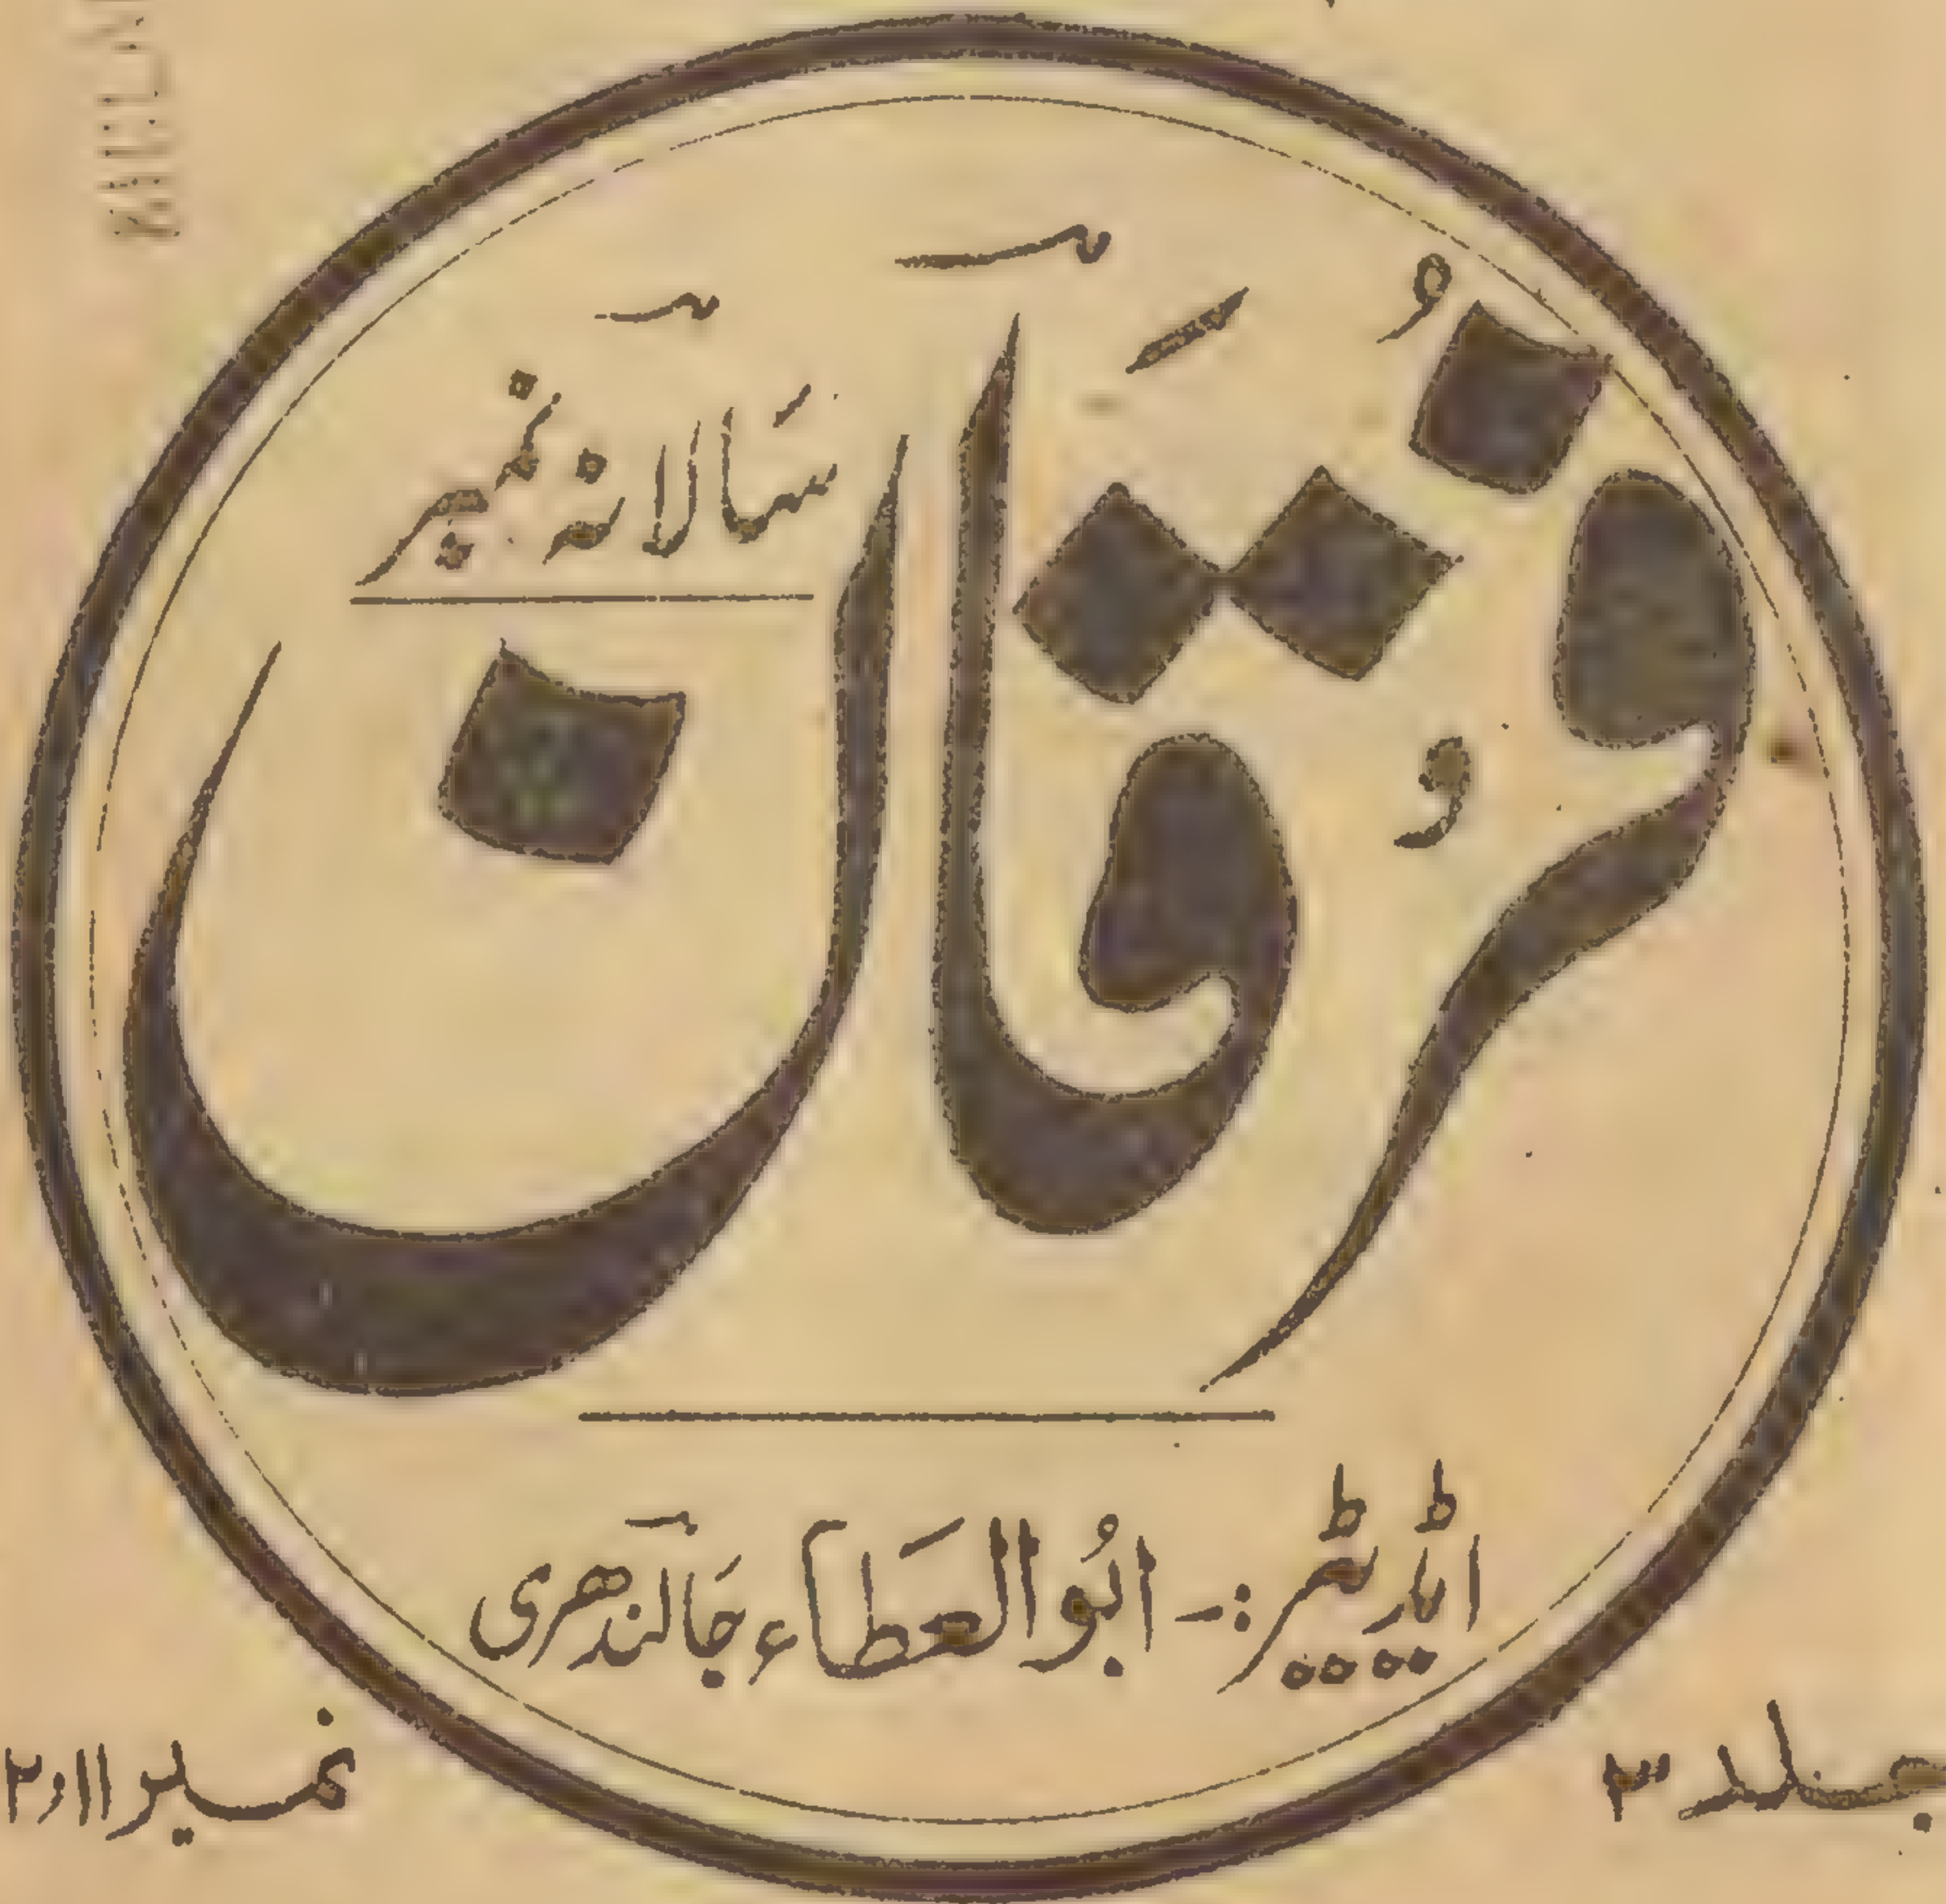 سَالانہ نمبر
فُرقَان
ایڈیٹر:- ابُوالعَطاء جَالندھری
جلد ۳
نمبر ۱۱و۲